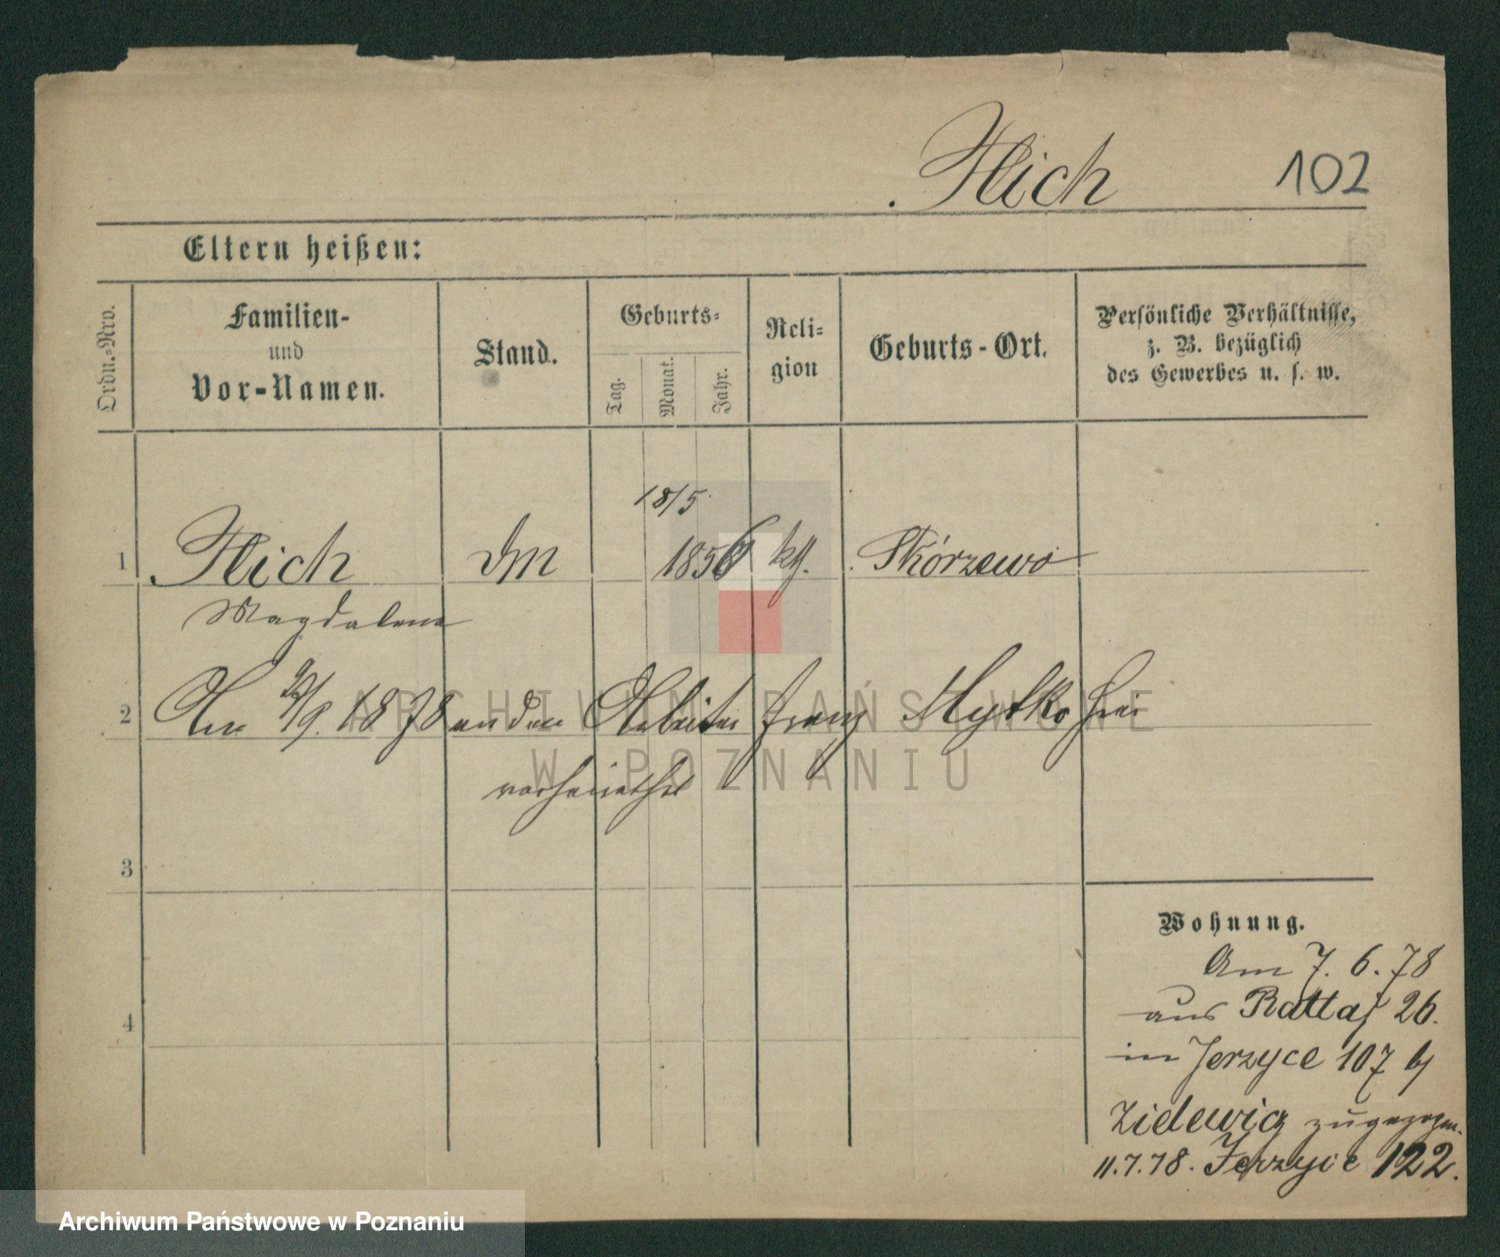 Flich 102
Eltern heißen:
Ordn.-Nro.
Familien-
und
Vor-Namen.
Stand.
Geburts-
Tag.
Monat.
Jahr.
Reli-
gion
Geburts-Ort.
Persönliche Verhältnisse,
z. B. bezüglich
des Gewerbes u. s. w.
18/5
1 Flich 1856 kg. Skórzewo
Magdalena
2 Am /9. 1878 an den Arbeiter Franz Mytko hier
verheirathet
3
4
Wohnung.
Am 7. 6. 78
aus Rattaj 26.
in Jerzyce 107 b/
Zielewicz zugezogen.
11.7.78. Jerzyce 122.
ARCHIWUM PAŃSTWOWE
W POZNANIU
Archiwum Państwowe w Poznaniu